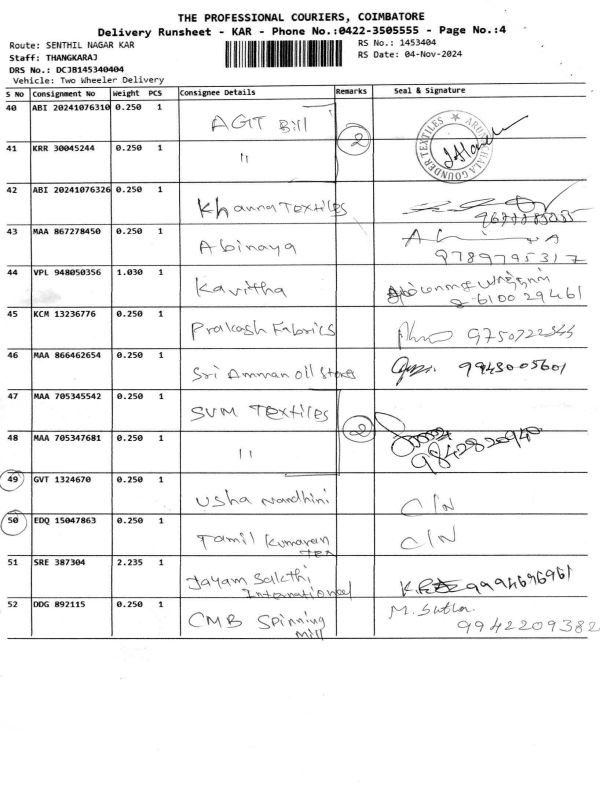 THE PROFESSIONAL COURIERS, COIMBATORE
Delivery Runsheet - KAR - Phone No.:0422-3505555 - Page No.:4
Route: SENTHIL NAGAR KAR
RS No.: 1453404
Staff: THANGKARAJ
RS Date: 04-Nov-2024
DRS No.: DCJB145340404
Vehicle: Two Wheeler Delivery
S No Consignment No Weight PCS Consignee Details Remarks Seal & Signature
40 ABI 20241076310 0.250 1 AGIT Bill
2
ARUNACHALA GOUNDER TEXTILES
41 KRR 30045244 0.250 1 "
42 ABI 20241076326 0.250 1 Khanna TEXTILES
43 MAA 867278450 0.250 1 Abinaya
9789795317
44 VPL 948050356 1.030 1 Kavittha
6100 29461
45 KCM 13236776 0.250 1 Prakash Fabrics
46 MAA 866462654 0.250 1 Sri Amman oil Stores 9943005601
47 MAA 705345542 0.250 1 SVM TEXTILES
2
48 MAA 705347681 0.250 1 "
9842820940
49 GVT 1324670 0.250 1 Usha Nandhini C/N
50 EDQ 15047863 0.250 1 Tamil Kumaran Tex C/N
51 SRE 387304 2.235 1 Jayam Sakthi International 9994696961
52 DDG 892115 0.250 1 CMB Spinning mill
9942209382